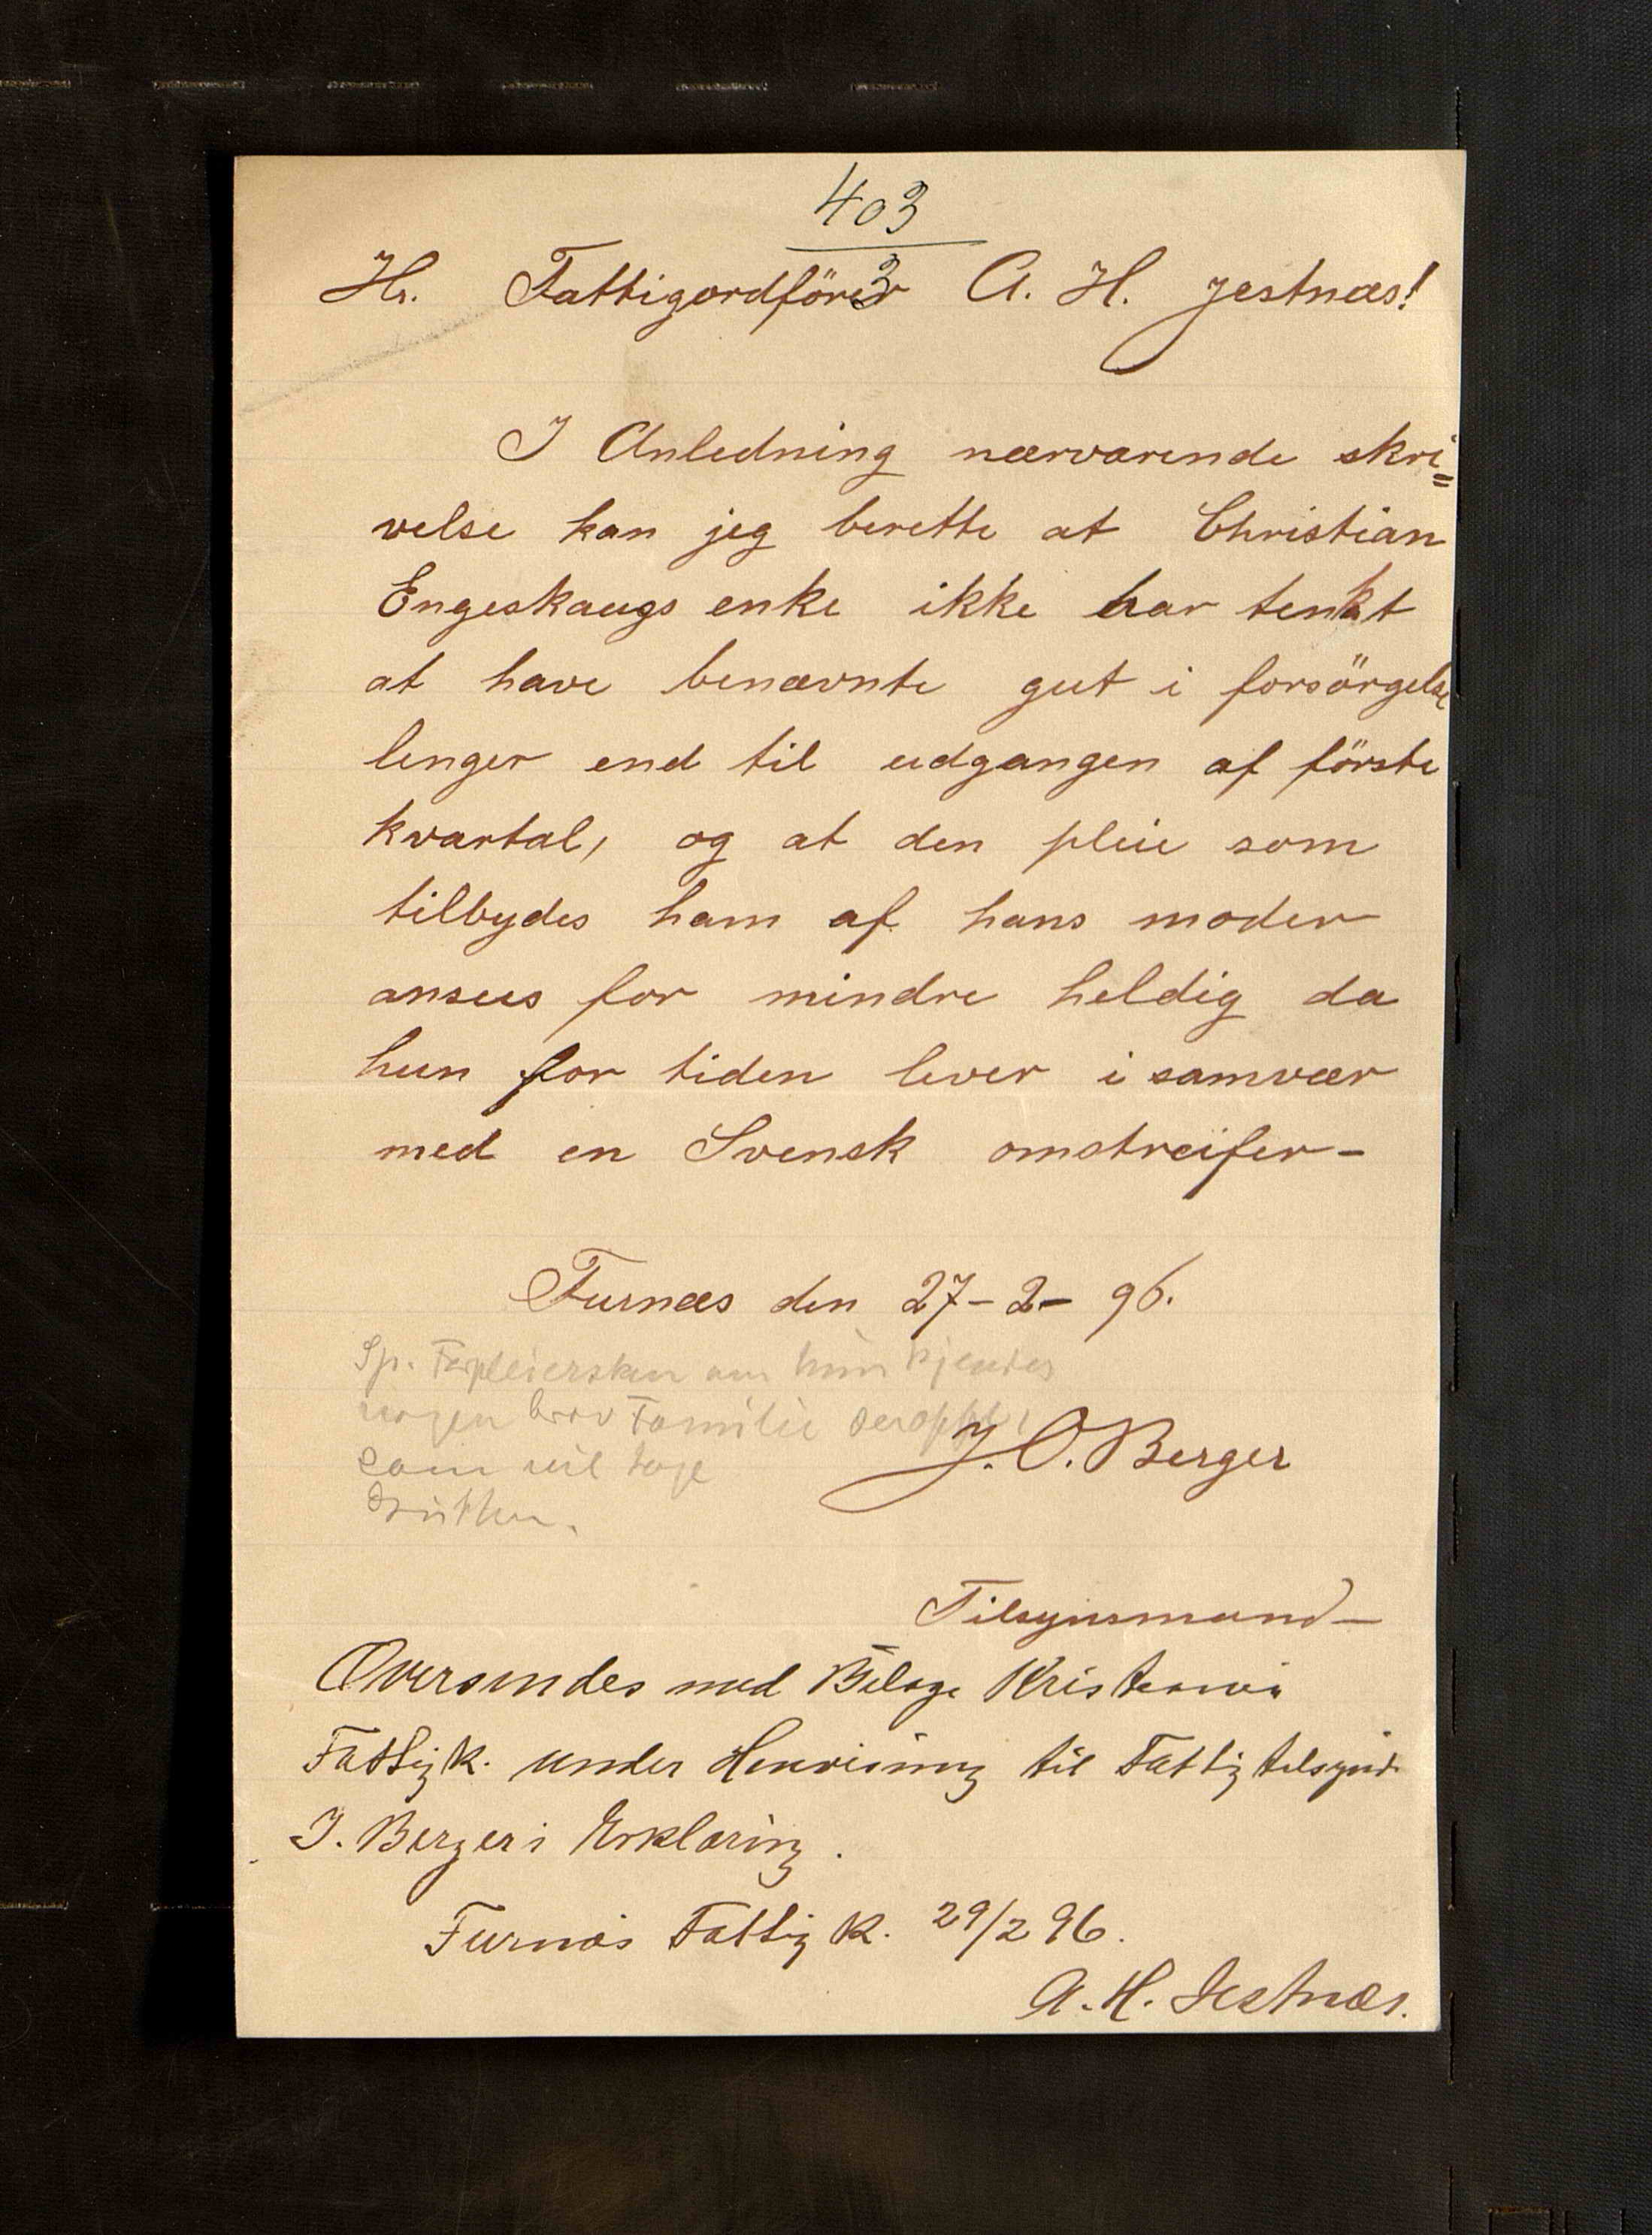 403
3
Hr. Fattigordförer A. H. Jestnæs!
I Anledning nærværende skri=
velse kan jeg berette at Christian
Engeskaugs enke ikke har tenkt
at have benævnte gut i forsörgelse
lenger end til udgangen af förste
kvartal, og at den pleie som
tilbydes ham af hans moder
ansees for mindre heldig da
hun for tiden lever i samvær
med en Svensk omstreifer-
Furnæs den 27-2-96.
Sp. Forpleiersken om hun kjender
nogen brav Familie deroppe,
som vil tage
Gutten.
J. O. Berger
Tilsynsmand-
Oversendes med Bilage Kristiania
Fattigk. under Henvisning til Fattigtilsynsm.
J. Berger i Erklæring.
Furnæs Fattigk. 29/2 96.
A. H. Jestnæs.